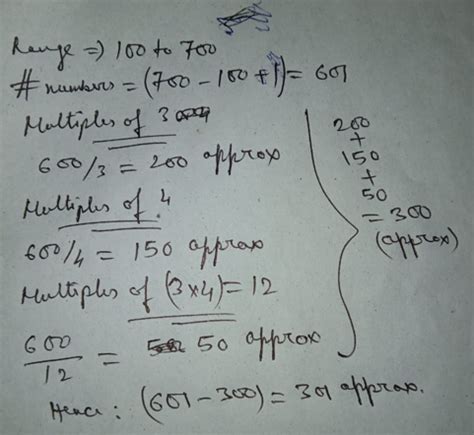 Range => 100 to 700
# numbers = (700 - 100 + 1) = 601
Multiples of 3
600/3 = 200 approx
Multiples of 4
600/4 = 150 approx
Multiples of (3x4) = 12
600/12 = 50 approx
200
+
150
+
50
= 300
(approx)
Hence : (601 - 300) = 301 approx.